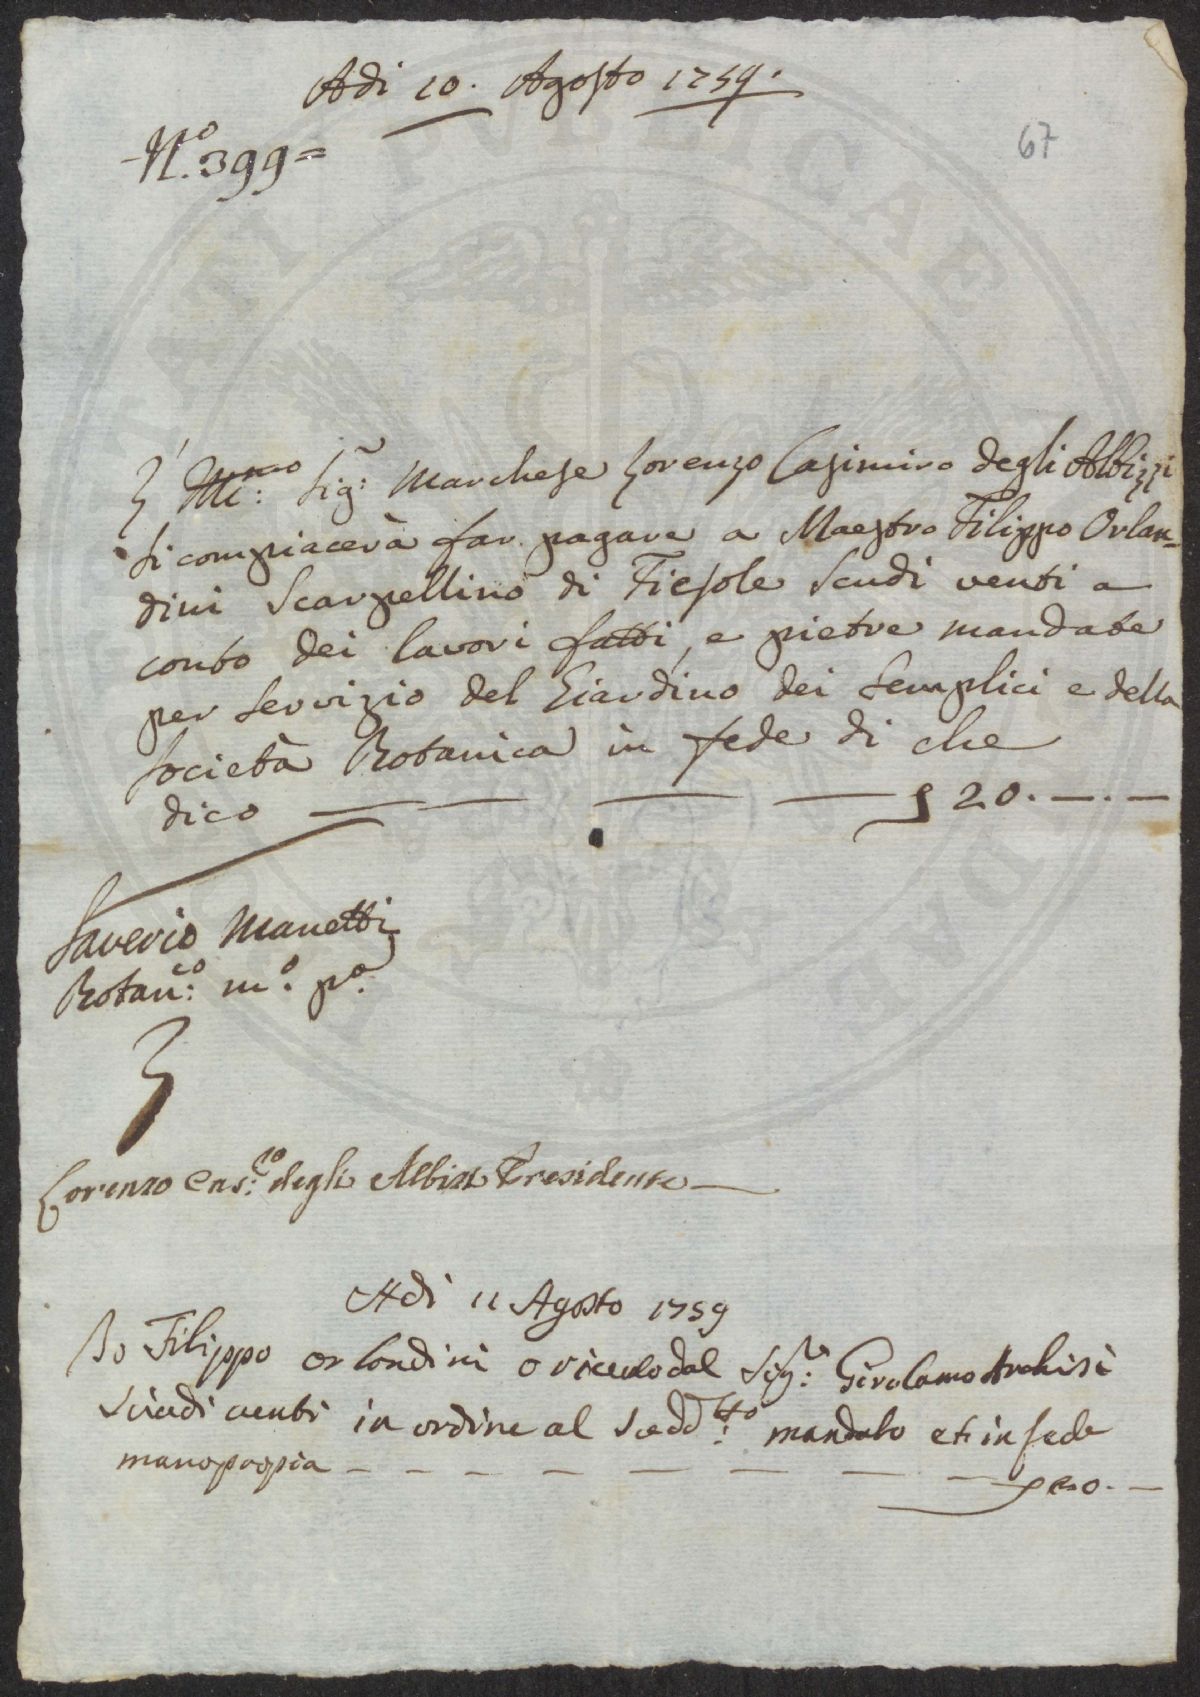 Adi 10. Agosto 1759.
N.o 399=
67
L' Ill:mo Sig:r Marchese Lorenzo Casimiro degli Albizzi
si compiacerà far pagare a Maestro Filippo Orlan=
dini Scarpellino di Fiesole Scudi venti a
conto dei lavori fatti, e pietre mandate
per servizio del Giardino dei Semplici e della
Società Botanica in fede di che
dico — — — — 20. —. —
Saverio Manetti
Botan:co m.o p.o
Lorenzo Cas:ro degli Albizi Presidente —
Adi 11 Agosto 1759
Io Filippo orlandini o riceuto dal Sig:re Girolamo
Scudi venti in ordine al sudd:tto mandato et in fede
manopropia — — — — — — — 20. —